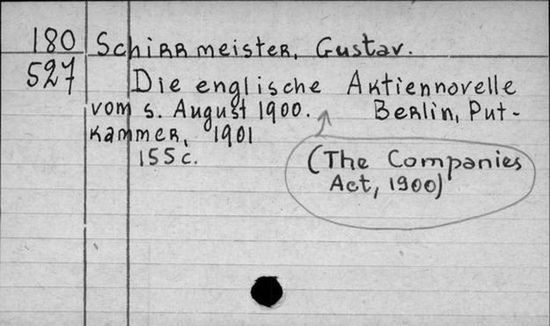 180 Schirrmeister, Gustav.
527 Die englische Aktiennovelle
vom s. August 1900. Berlin, Put-
kammer, 1901
155 c.
(The Companies
Act, 1900)